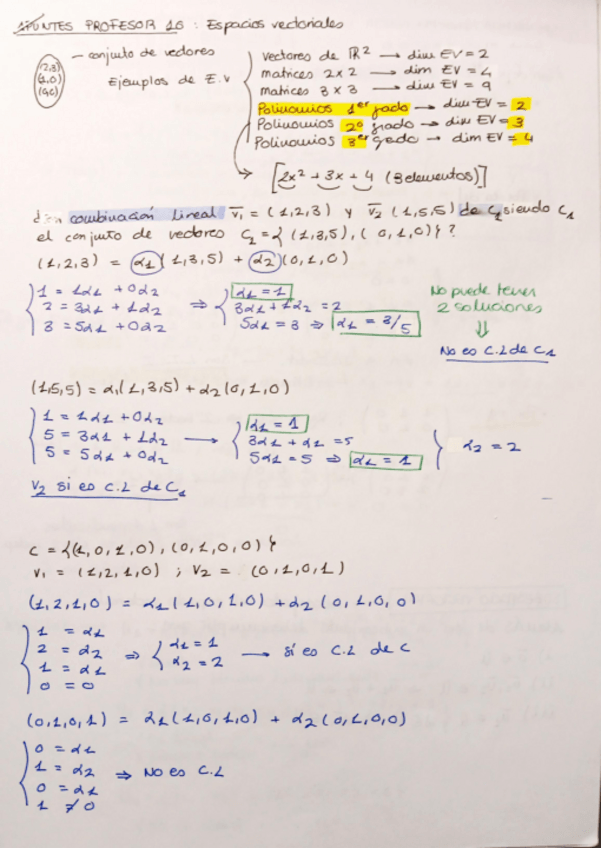 APUNTES PROFESOR 1G : Espacios vectoriales
(2,3)
(1,0)
— conjunto de vectores
Ejemplos de E.V
vectores de ℝ² → dim EV = 2
matrices 2x2 → dim EV = 4
matrices 3x3 → dim EV = 9
Polinomios 1er grado → dim EV = 2
Polinomios 2º grado → dim EV = 3
Polinomios 3er grado → dim EV = 4
[2x² + 3x + 4 (3 elementos)]
combinación lineal v₁ = (1,2,3) y v₂ (1,5,5) de C₁ siendo C₁
el conjunto de vectores C₂ = { (1,3,5), (0,1,0) } ?
(1,2,3) = α1 (1,3,5) + α2 (0,1,0)
1 = 1α1 + 0α2
2 = 3α1 + 1α2
3 = 5α1 + 0α2
⇒ α1 = 1
3α1 + 1α2 = 2
5α1 = 3 ⇒ α1 = 3/5
No puede tener
2 soluciones
⇓
No es C.L de C1
(1,5,5) = α1 (1,3,5) + α2 (0,1,0)
1 = 1α1 + 0α2
5 = 3α1 + 1α2
5 = 5α1 + 0α2
→ α1 = 1
3α1 + α1 = 5
5α1 = 5 ⇒ α1 = 1
α2 = 2
V2 si es C.L de C1
C = {(1,0,1,0), (0,1,0,0) }
V1 = (1,2,1,0) ; V2 = (0,1,0,1)
(1,2,1,0) = α1 (1,0,1,0) + α2 (0,1,0,0)
1 = α1
2 = α2
1 = α1
0 = 0
⇒ α1 = 1
α2 = 2
→ sí es C.L de C
(0,1,0,1) = α1 (1,0,1,0) + α2 (0,1,0,0)
0 = α1
1 = α2
0 = α1
1 ≠ 0
⇒ No es C.L